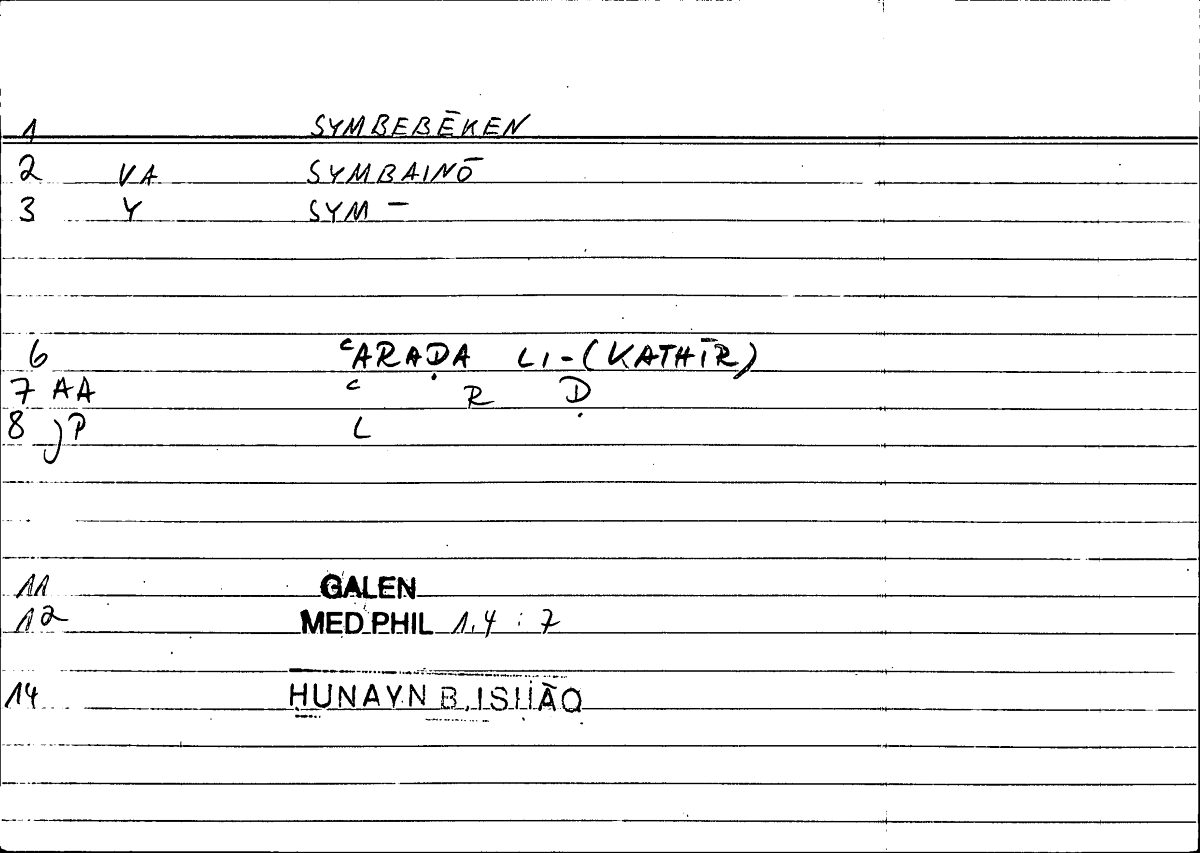 1 SYMBEBĒKEN
2 VA SYMBAINŌ
3 Y SYM –
6 ᶜARAḌA LI-(KATHĪR)
7 AA ᶜ R Ḍ
8 jP L
11 GALEN
12 MED PHIL 1,4 : 7
14 HUNAYN B. ISHĀQ